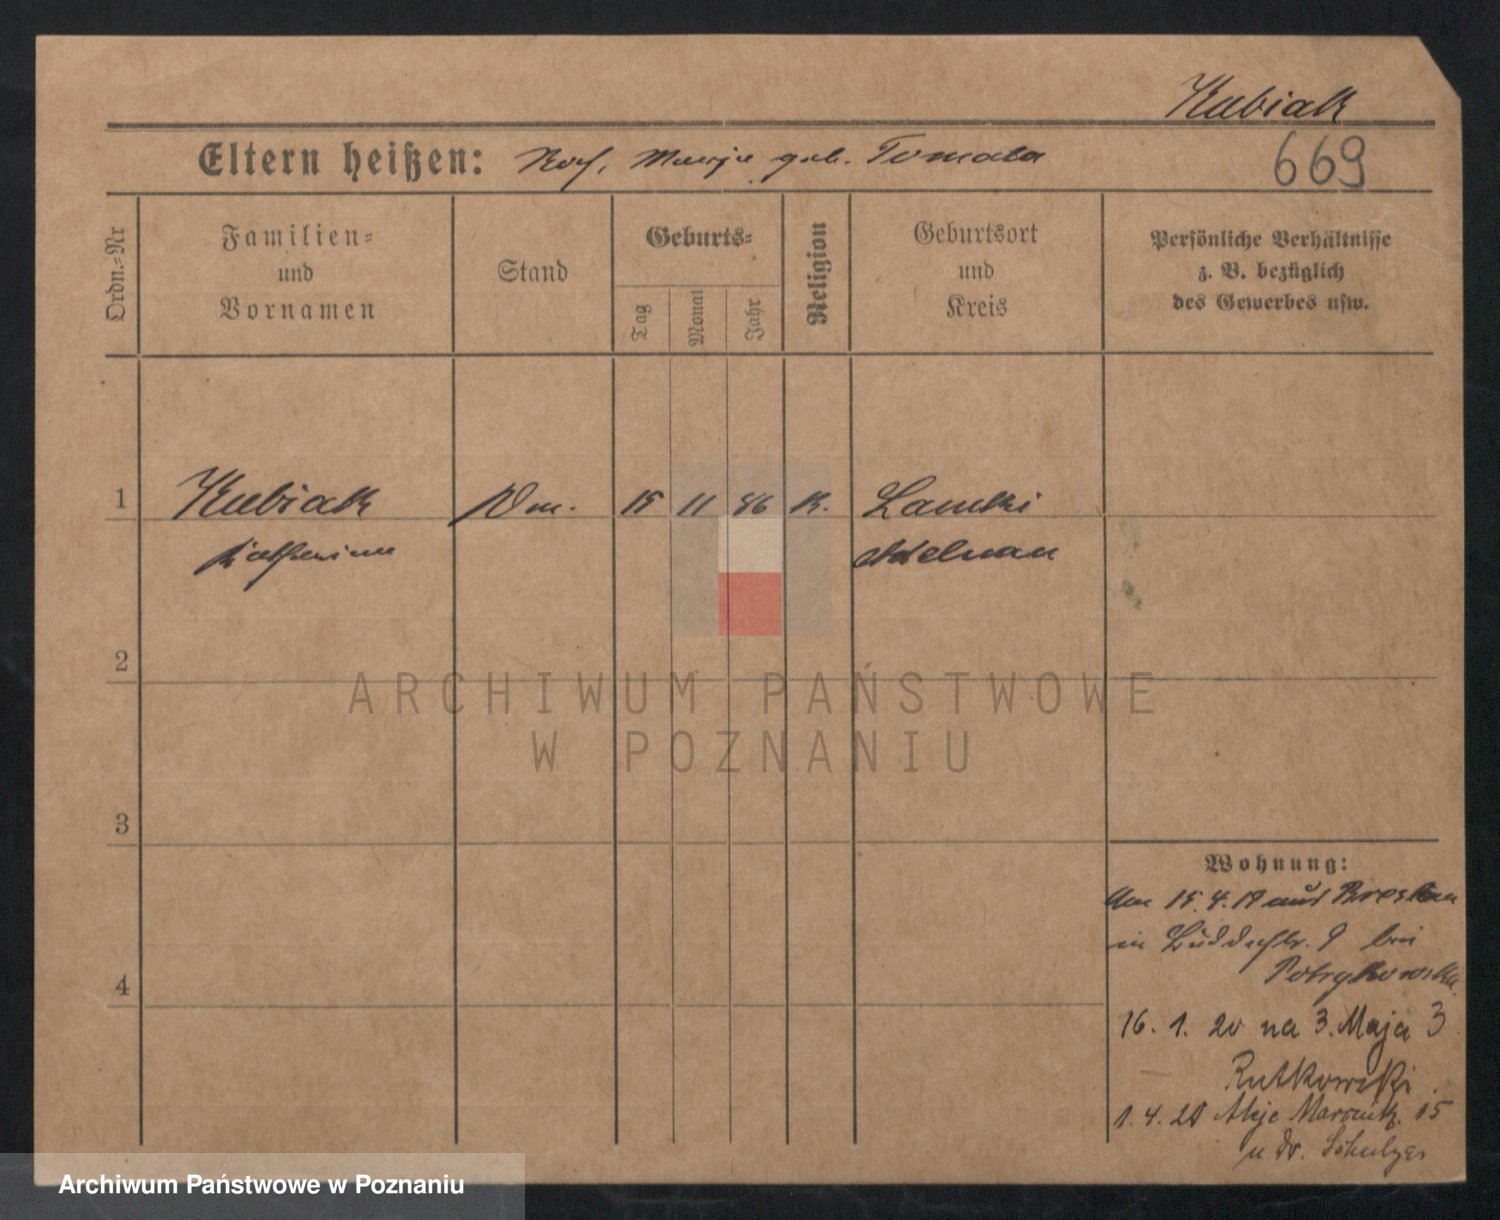 Kubiak
Eltern heißen: Marja geb. Tomala
669
Ordn.-Nr
Familien-
und
Vornamen
Stand
Geburts-
Tag
Monat
Jahr
Religion
Geburtsort
und
Kreis
Persönliche Verhältnisse
z. B. bezüglich
des Gewerbes usw.
1
Kubiak 15 11 86 K. Lamki
Katharina Adelnau
2
ARCHIWUM PAŃSTWOWE
W POZNANIU
3
Wohnung:
Am 15.4.19 aus Breslau
in 9 bei
4
16. 1. 20 na 3. Maja 3
Rutkowski
1. 4. 20 Aleje Marcink. 15
u dr.
Archiwum Państwowe w Poznaniu